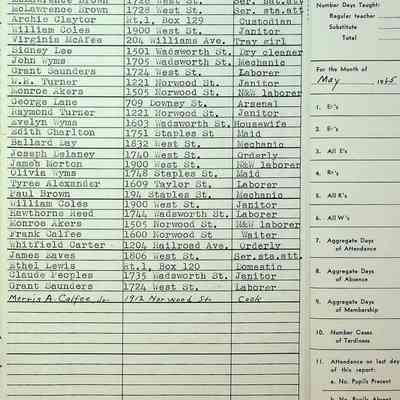 McLawrence Brown 1728 West St. Ser. sta.att.
Archie Claytor Rt.1, Box 129 Custodian
William Coles 1900 West St. Janitor
Virginia McAfee 204 Williams Ave. Tray girl
Sidney Lee 1501 Wadsworth St. Dry cleaner
John Wyms 1705 Wadsworth St. Mechanic
Grant Saunders 1724 West St. Laborer
W.H. Turner 1221 Norwood St. Janitor
Monroe Akers 1505 Norwood St. N&W laborer
George Lane 709 Downey St. Arsenal
Raymond Turner 1221 Norwood St. Janitor
Evelyn Wyms 1603 Wadsworth St. Housewife
Edith Charlton 1751 Staples St. Maid
Ballard May 1832 West St. Mechanic
Joseph Delaney 1740 West St. Orderly
James Morton 1900 West St. N&W laborer
Olivia Wyms 1748 Staples St. Maid
Tyree Alexander 1609 Taylor St. Laborer
Paul Brown 194 Staples St. Mechanic
William Coles 1900 West St. Janitor
Hawthorne Reed 1744 Wadsworth St. Laborer
Monroe Akers 1505 Norwood St. N&W laborer
Frank Calfee 1600 West St. Waiter
Whitfield Carter 1204 Railroad Ave. Orderly
James Eaves 1806 West St. Ser.sta.att.
Ethel Lewis Rt.1, Box 120 Domestic
Claude Peoples 1735 Wadsworth St. Janitor
Grant Saunders 1724 West St. Laborer
Morris A. Calfee Jr. 1912 Norwood St. Cook
Number Days Taught:
Regular teacher
Substitute
Total
For the Month of
May
1. E¹'s
2. E²'s
3. All E's
4. R¹'s
5. All R's
6. All W's
7. Aggregate Days
of Attendance
8. Aggregate Days
of Absence
9. Aggregate Days
of Membership
10. Number Cases
of Tardiness
11. Attendance on last day
of this report:
a. No. Pupils Present
b. No. Pupils Absent